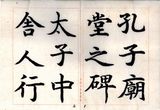 孔子廟
堂之碑
太子中
舍人行